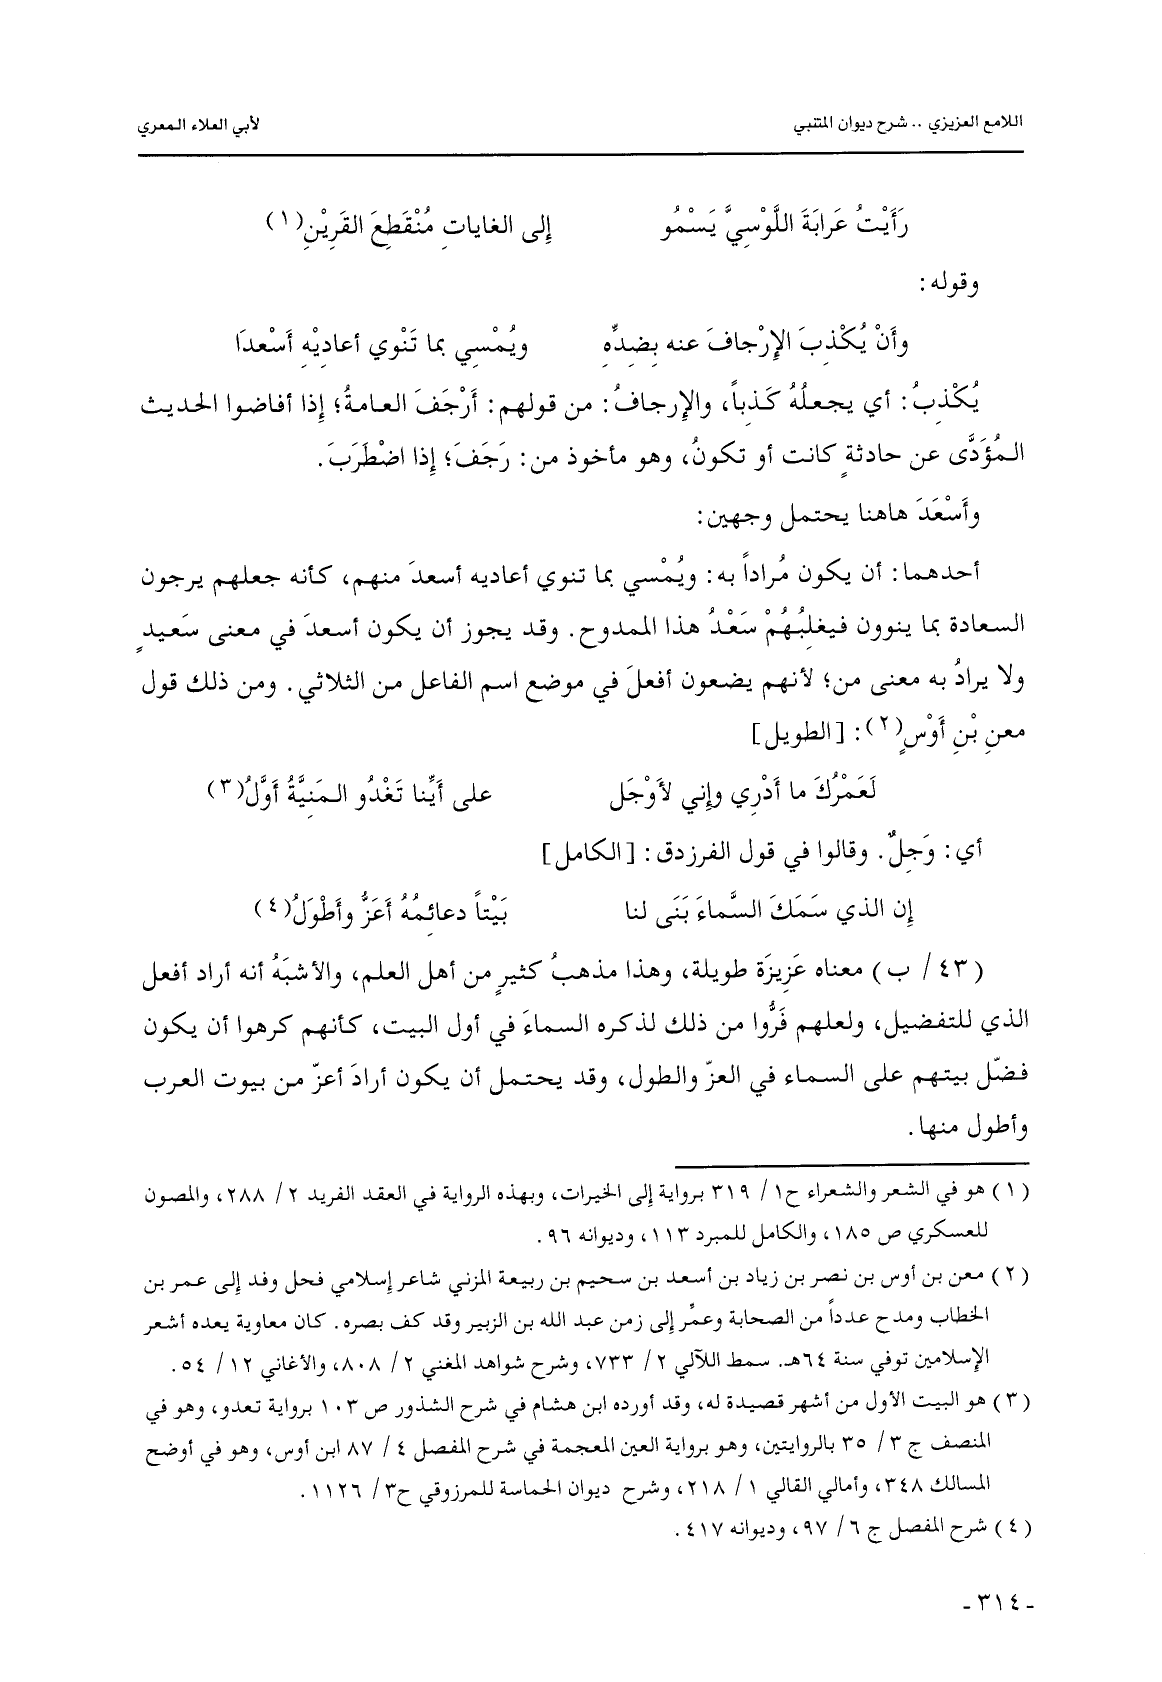 اللامع العزيزي .. شرح ديوان المتنبي لأبي العلاء المعري
رَأَيْتُ عَرابَةَ اللَّوْسِيَّ يَسْمُو إلى الغاياتِ مُنْقَطِعَ القَرِيْنِ(١)
وقوله:
وأَنْ يُكْذِبَ الإِرْجافَ عنه بِضِدِّهِ ويُمْسِي بما تَنْوي أعادِيْهِ أَسْعدَا
يُكْذِبُ: أي يجعلُهُ كَذباً، والإرجافُ: من قولهم: أَرْجَفَ العامةُ؛ إذا أفاضوا الحديث
المُؤَدَّى عن حادثةٍ كانت أو تكونُ، وهو مأخوذ من: رَجَفَ؛ إذا اضْطَرَبَ.
وأَسْعَدَ هاهنا يحتمل وجهين:
أحدهما: أن يكون مُراداً به: ويُمْسي بما تنوي أعاديه أسعدَ منهم، كأنه جعلهم يرجون
السعادة بما ينوون فيغلِبُهُمْ سَعْدُ هذا الممدوح. وقد يجوز أن يكون أسعدَ في معنى سَعيدٍ
ولا يرادُ به معنى من؛ لأنهم يضعون أفعلَ في موضع اسم الفاعل من الثلاثي. ومن ذلك قول
معنِ بْنِ أَوْسٍ(٢): [الطويل]
لَعَمْرُكَ ما أَدْرِي وإِني لأَوْجَل على أَيِّنا تَغْدُو المَنِيَّةُ أَوَّلُ(٣)
أي: وَجِلٌ. وقالوا في قول الفرزدق: [الكامل]
إن الذي سَمَكَ السَّماءَ بَنَى لنا بَيْتاً دعائِمُهُ أَعَزُّ وأَطْوَلُ(٤)
(٤٣/ ب) معناه عَزِيزَة طويلة، وهذا مذهبُ كثيرٍ من أهل العلم، والأشبَهُ أنه أراد أفعل
الذي للتفضيل، ولعلهم فَرُّوا من ذلك لذكره السماءَ في أول البيت، كأنهم كرهوا أن يكون
فضّل بيتهم على السماء في العزّ والطول، وقد يحتمل أن يكون أرادَ أعزّ من بيوت العرب
وأطول منها.
(١) هو في الشعر والشعراء ح١/ ٣١٩ برواية إلى الخيرات، وبهذه الرواية في العقد الفريد ٢/ ٢٨٨، والمصون
للعسكري ص ١٨٥، والكامل للمبرد ١١٣، وديوانه ٩٦.
(٢) معن بن أوس بن نصر بن زياد بن أسعد بن سحيم بن ربيعة المزني شاعر إسلامي فحل وفد إلى عمر بن
الخطاب ومدح عدداً من الصحابة وعمِّر إلى زمن عبد الله بن الزبير وقد كف بصره. كان معاوية يعده أشعر
الإسلامين توفي سنة ٦٤هـ. سمط اللآلي ٢/ ٧٣٣، وشرح شواهد المغني ٢/ ٨٠٨، والأغاني ١٢/ ٥٤.
(٣) هو البيت الأول من أشهر قصيدة له، وقد أورده ابن هشام في شرح الشذور ص ١٠٣ برواية تعدو، وهو في
المنصف ج ٣/ ٣٥ بالروايتين، وهو برواية العين المعجمة في شرح المفصل ٤/ ٨٧ ابن أوس، وهو في أوضح
المسالك ٣٤٨، وأمالي القالي ١/ ٢١٨، وشرح ديوان الحماسة للمرزوقي ح٣/ ١١٢٦.
(٤) شرح المفصل ج ٦/ ٩٧، وديوانه ٤١٧.
- ٣١٤ -